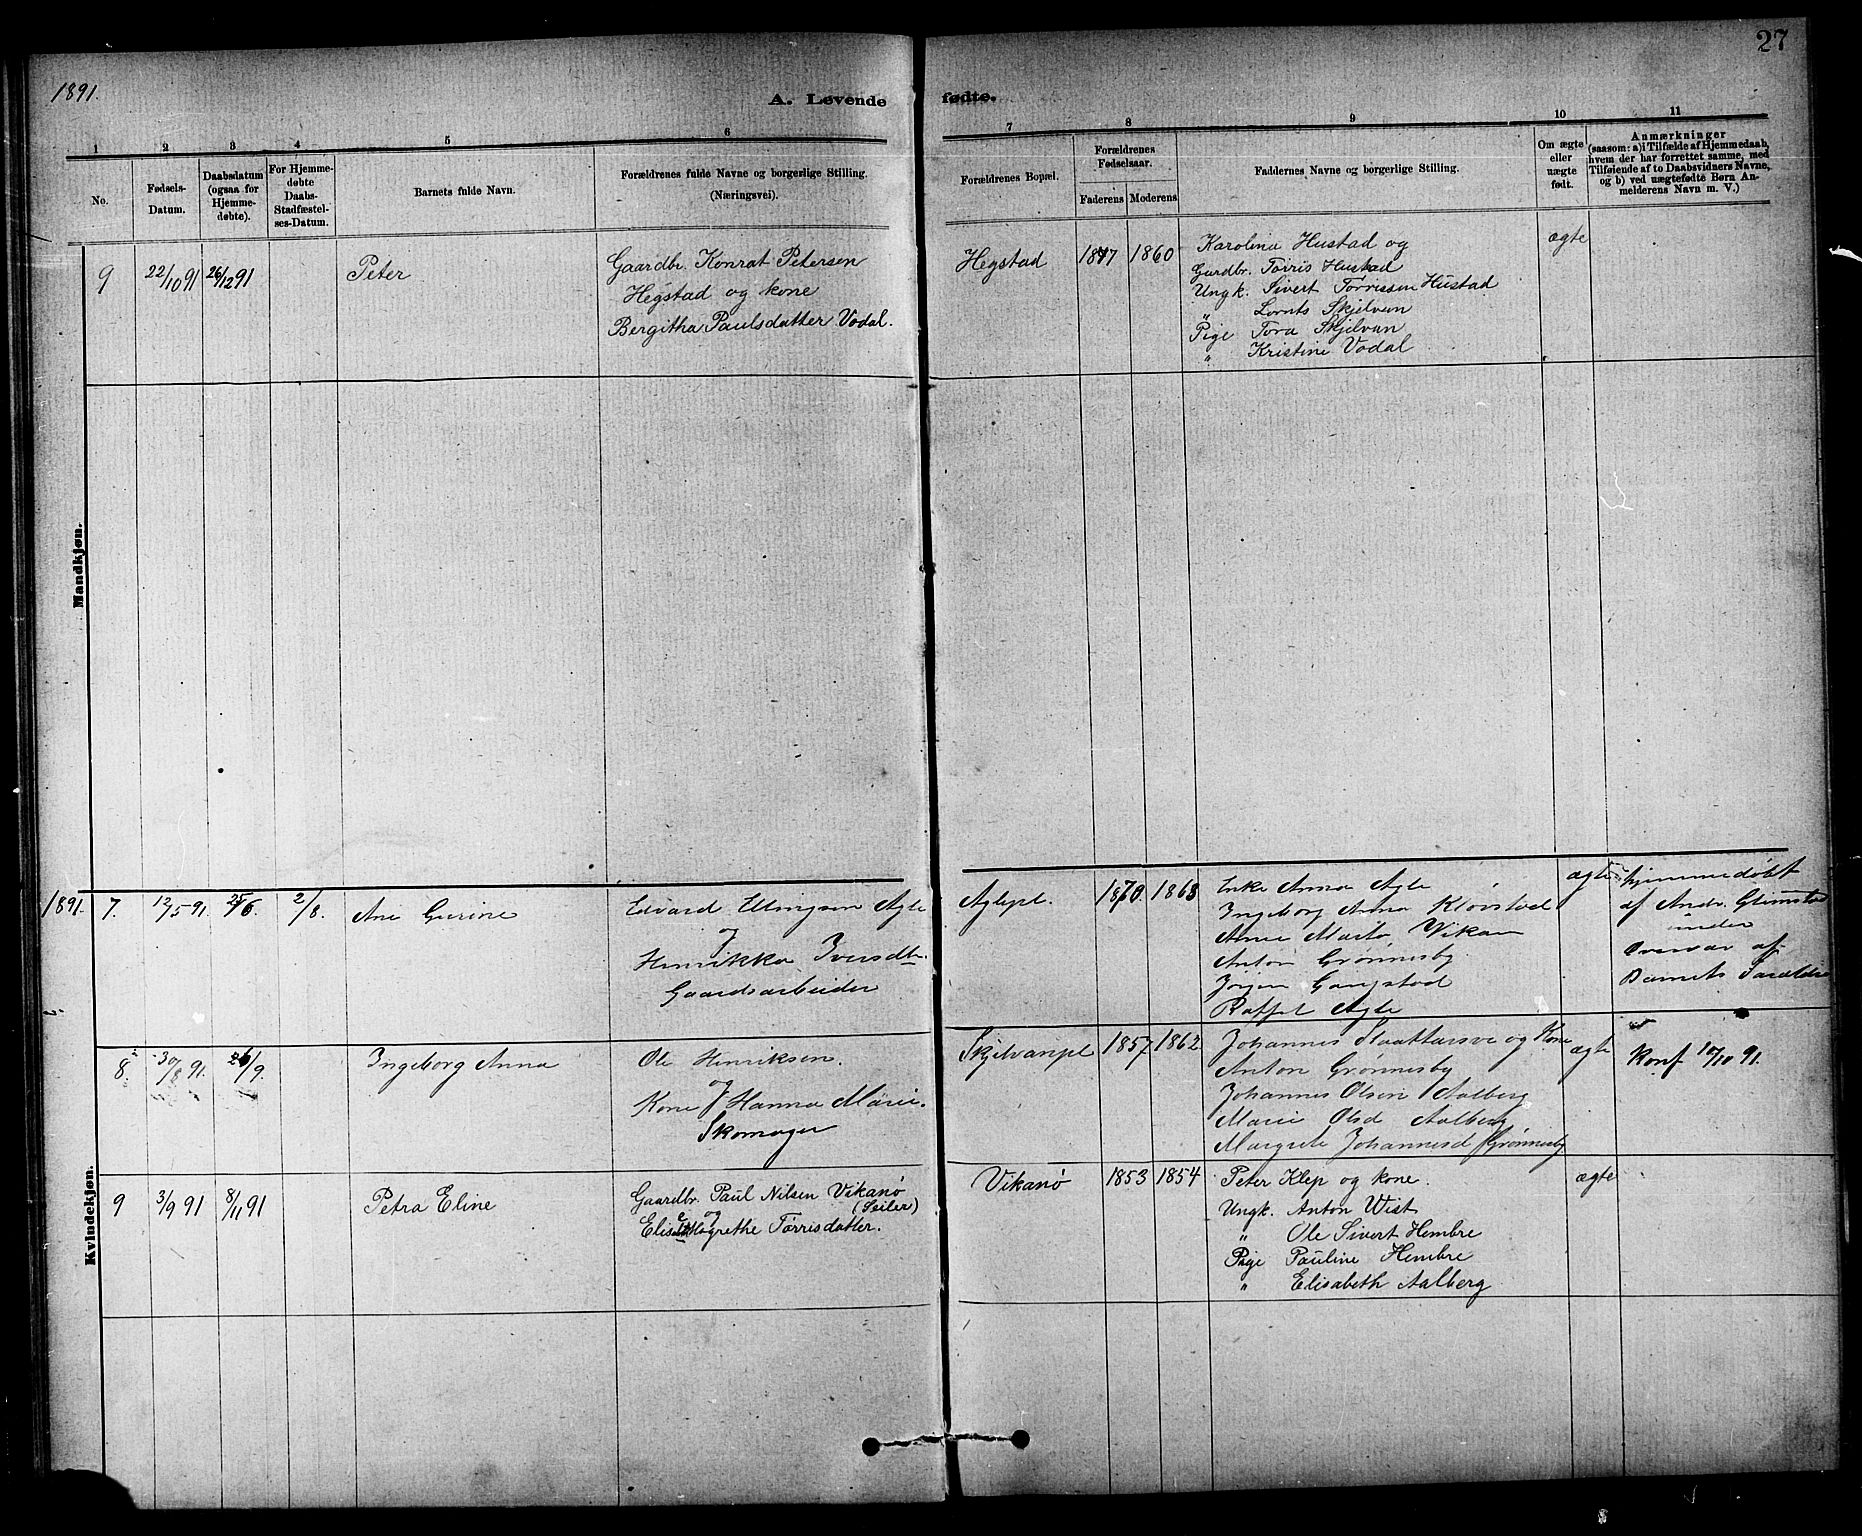 27
1891.
A. Levende fødte.
1 2 3 4 5 6 7 8 9 10 11
No.
Fødsels-Datum.
Daabsdatum (ogsaa for Hjemme-døbte).
For Hjemme-døbte Daabs-Stadfæstel-ses-Datum.
Barnets fulde Navn.
Forældrenes fulde Navne og borgerlige Stilling.
(Næringsvei).
Forældrenes Bopæl.
Forældrenes Fødselsaar.
Faderens Moderens
Faddernes Navne og borgerlige Stilling.
Om ægte eller uægte født.
Anmærkninger
(saasom: a) i Tilfælde af Hjemmedaab,
hvem der har forrettet samme, med
Tilføiende af to Daabsvidners Navne,
og b) ved uægtefødte Børn An-
melderens Navn m. V.)
Mandkjøn.
9 22/10 91 26/12 91 Peter
Gaardbr. Konrat Petersen
Hegstad og kone
Bergitha Paulsdatter Vodal.
Hegstad 1847 1860
Karolina Hustad og
Gardbr. Torris Hustad
Ungk. Sivert Torrissen Hustad
" Lornts Skjelvan
Pige Tora Skjelvan
" Kristine Vodal
ægte
Kvindekjøn.
1891. 7. 12/5 91. 25/6. 2/8. Ane Gurine
Edvard Ellingsen Agle
og
Henrikka Iversdtr.
Gaardsarbeider
Aglepl. 1870. 1868
Enke Anna Agle
Ingeborg Anna
Anne Marta Vikan
Anton Grønnesby.
Jørgen Gangstad
Agle
ægte
hjemmedøbt
af Andr. Glimstad
under
Overvær af
Barnets Forældre
8. 30/8 91. 26/9. Ingeborg Anna
Ole Henriksen.
og
Kone Hanna Marie.
Skomager
Skjelvanpl 1857. 1862.
Johannes og Kone
Anton Grønnesby
Johannes Olsen Aalberg
Marie Olsd Aalberg
Margrete Johannesd Grønnesby
ægte
Konf 10/10 91.
9 3/9 91 8/11 91 Petra Eline
Gaardbr. Paul Nilsen Vikanø
og (Seiler)
Magrethe Torrisdatter.
Vikanø 1853 1854
Peter Klep og kone.
Ungk. Anton Wist
" Ole Sivert Hembre
Pige Pauline Hembre
" Elisabeth Aalberg
ægte